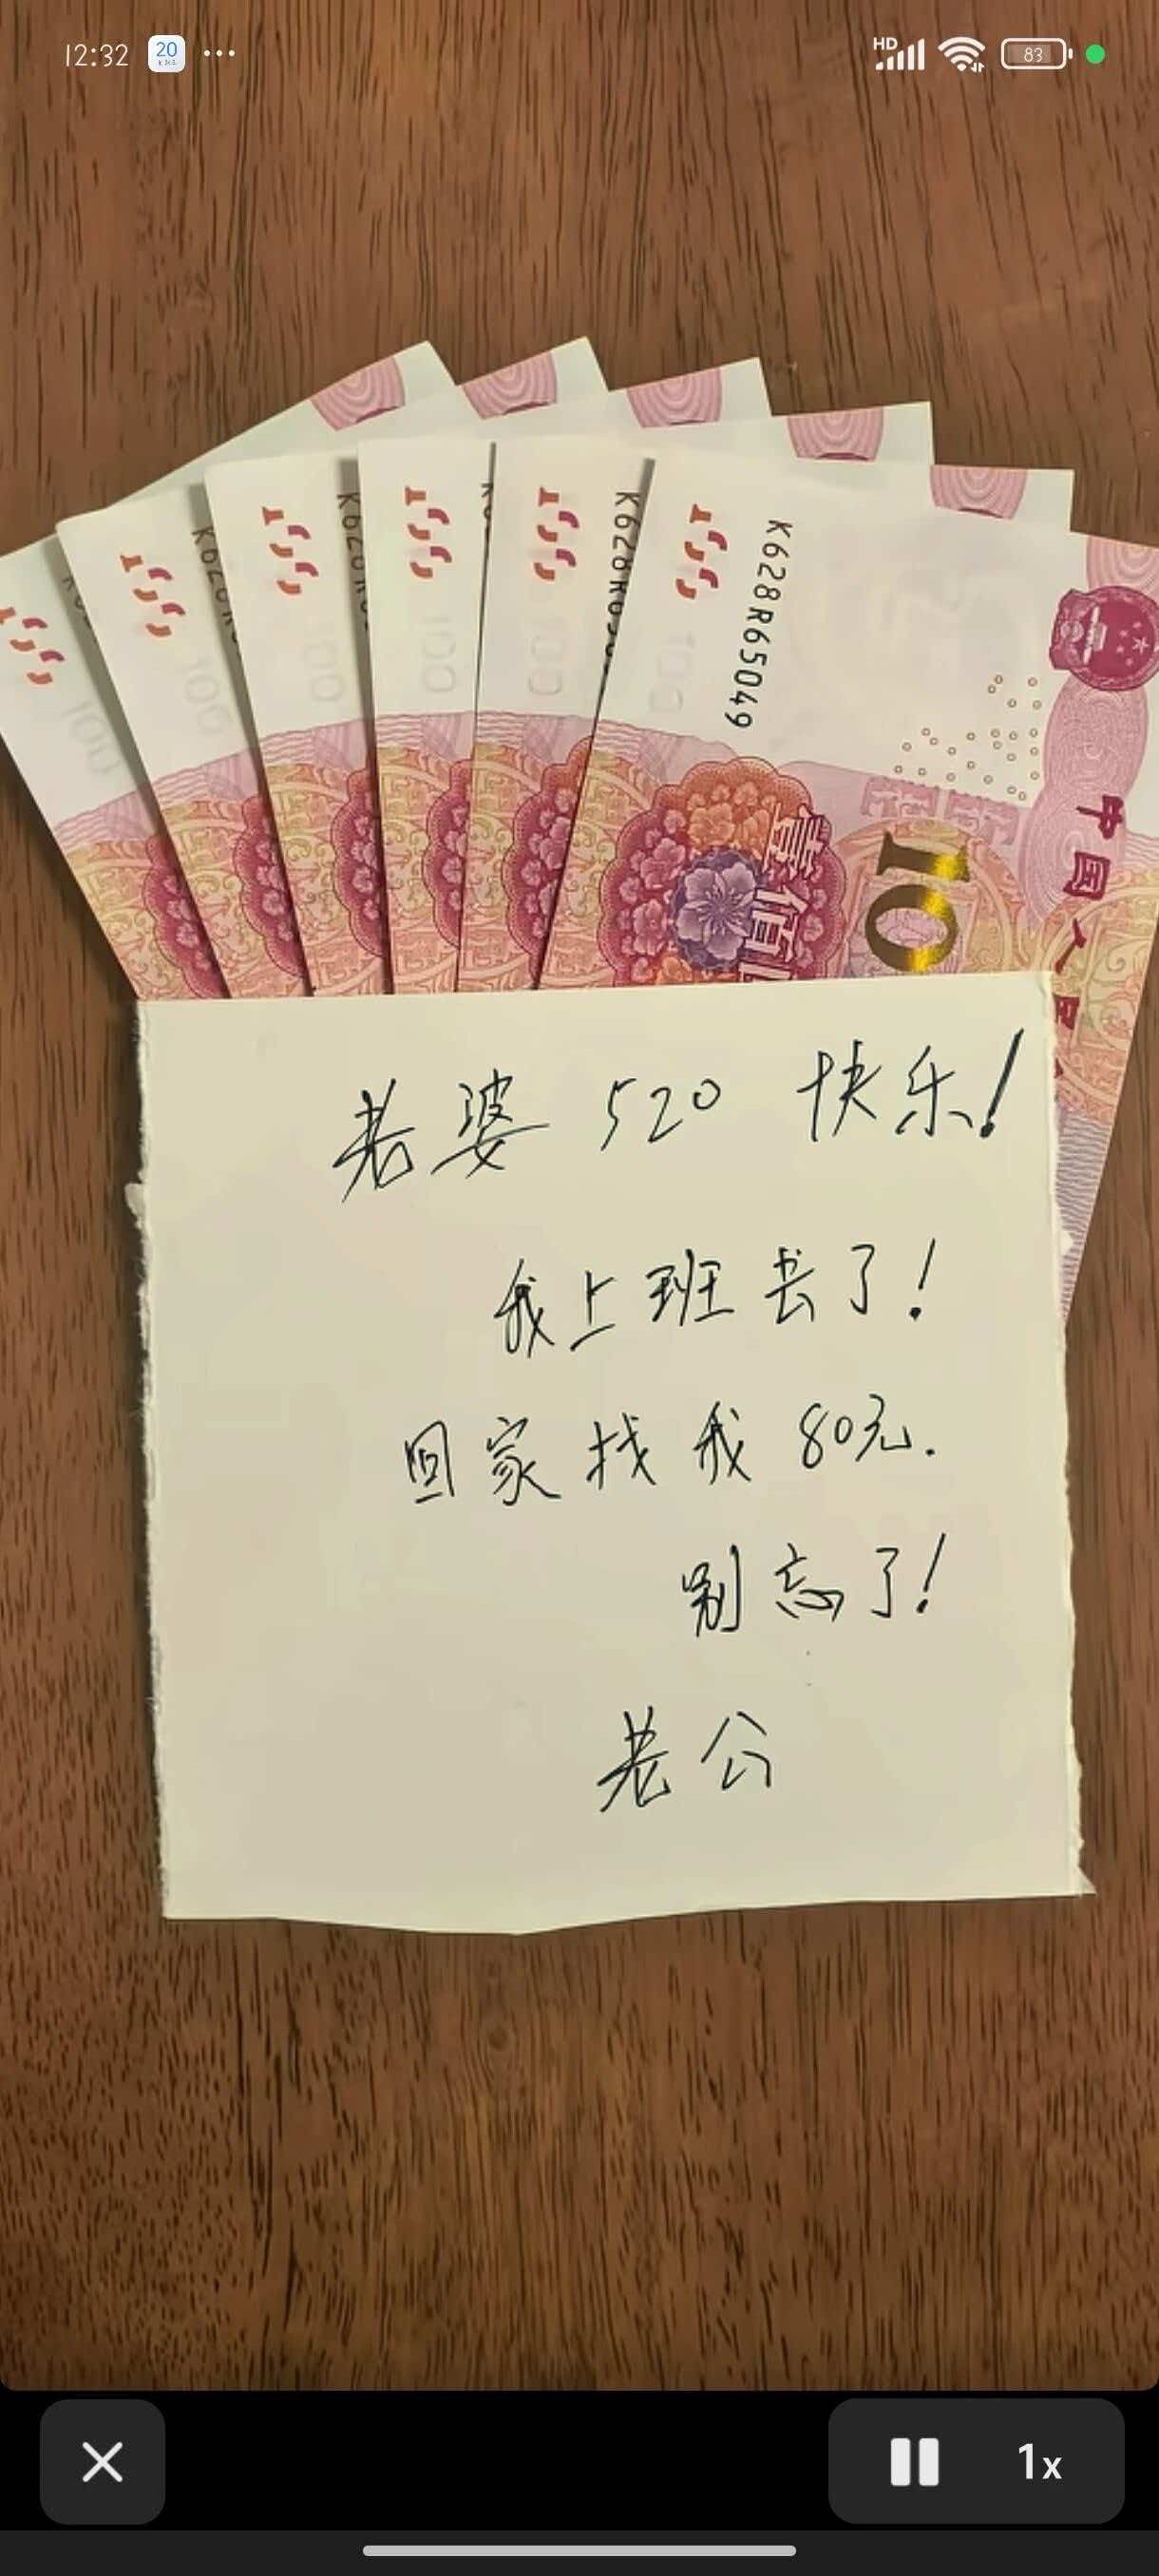 12:32
20
HD
83
K628R65049
100
壹佰
10
中国人民
老婆 520 快乐!
我上班去了!
回家找我 80元.
别忘了!
老公
1x